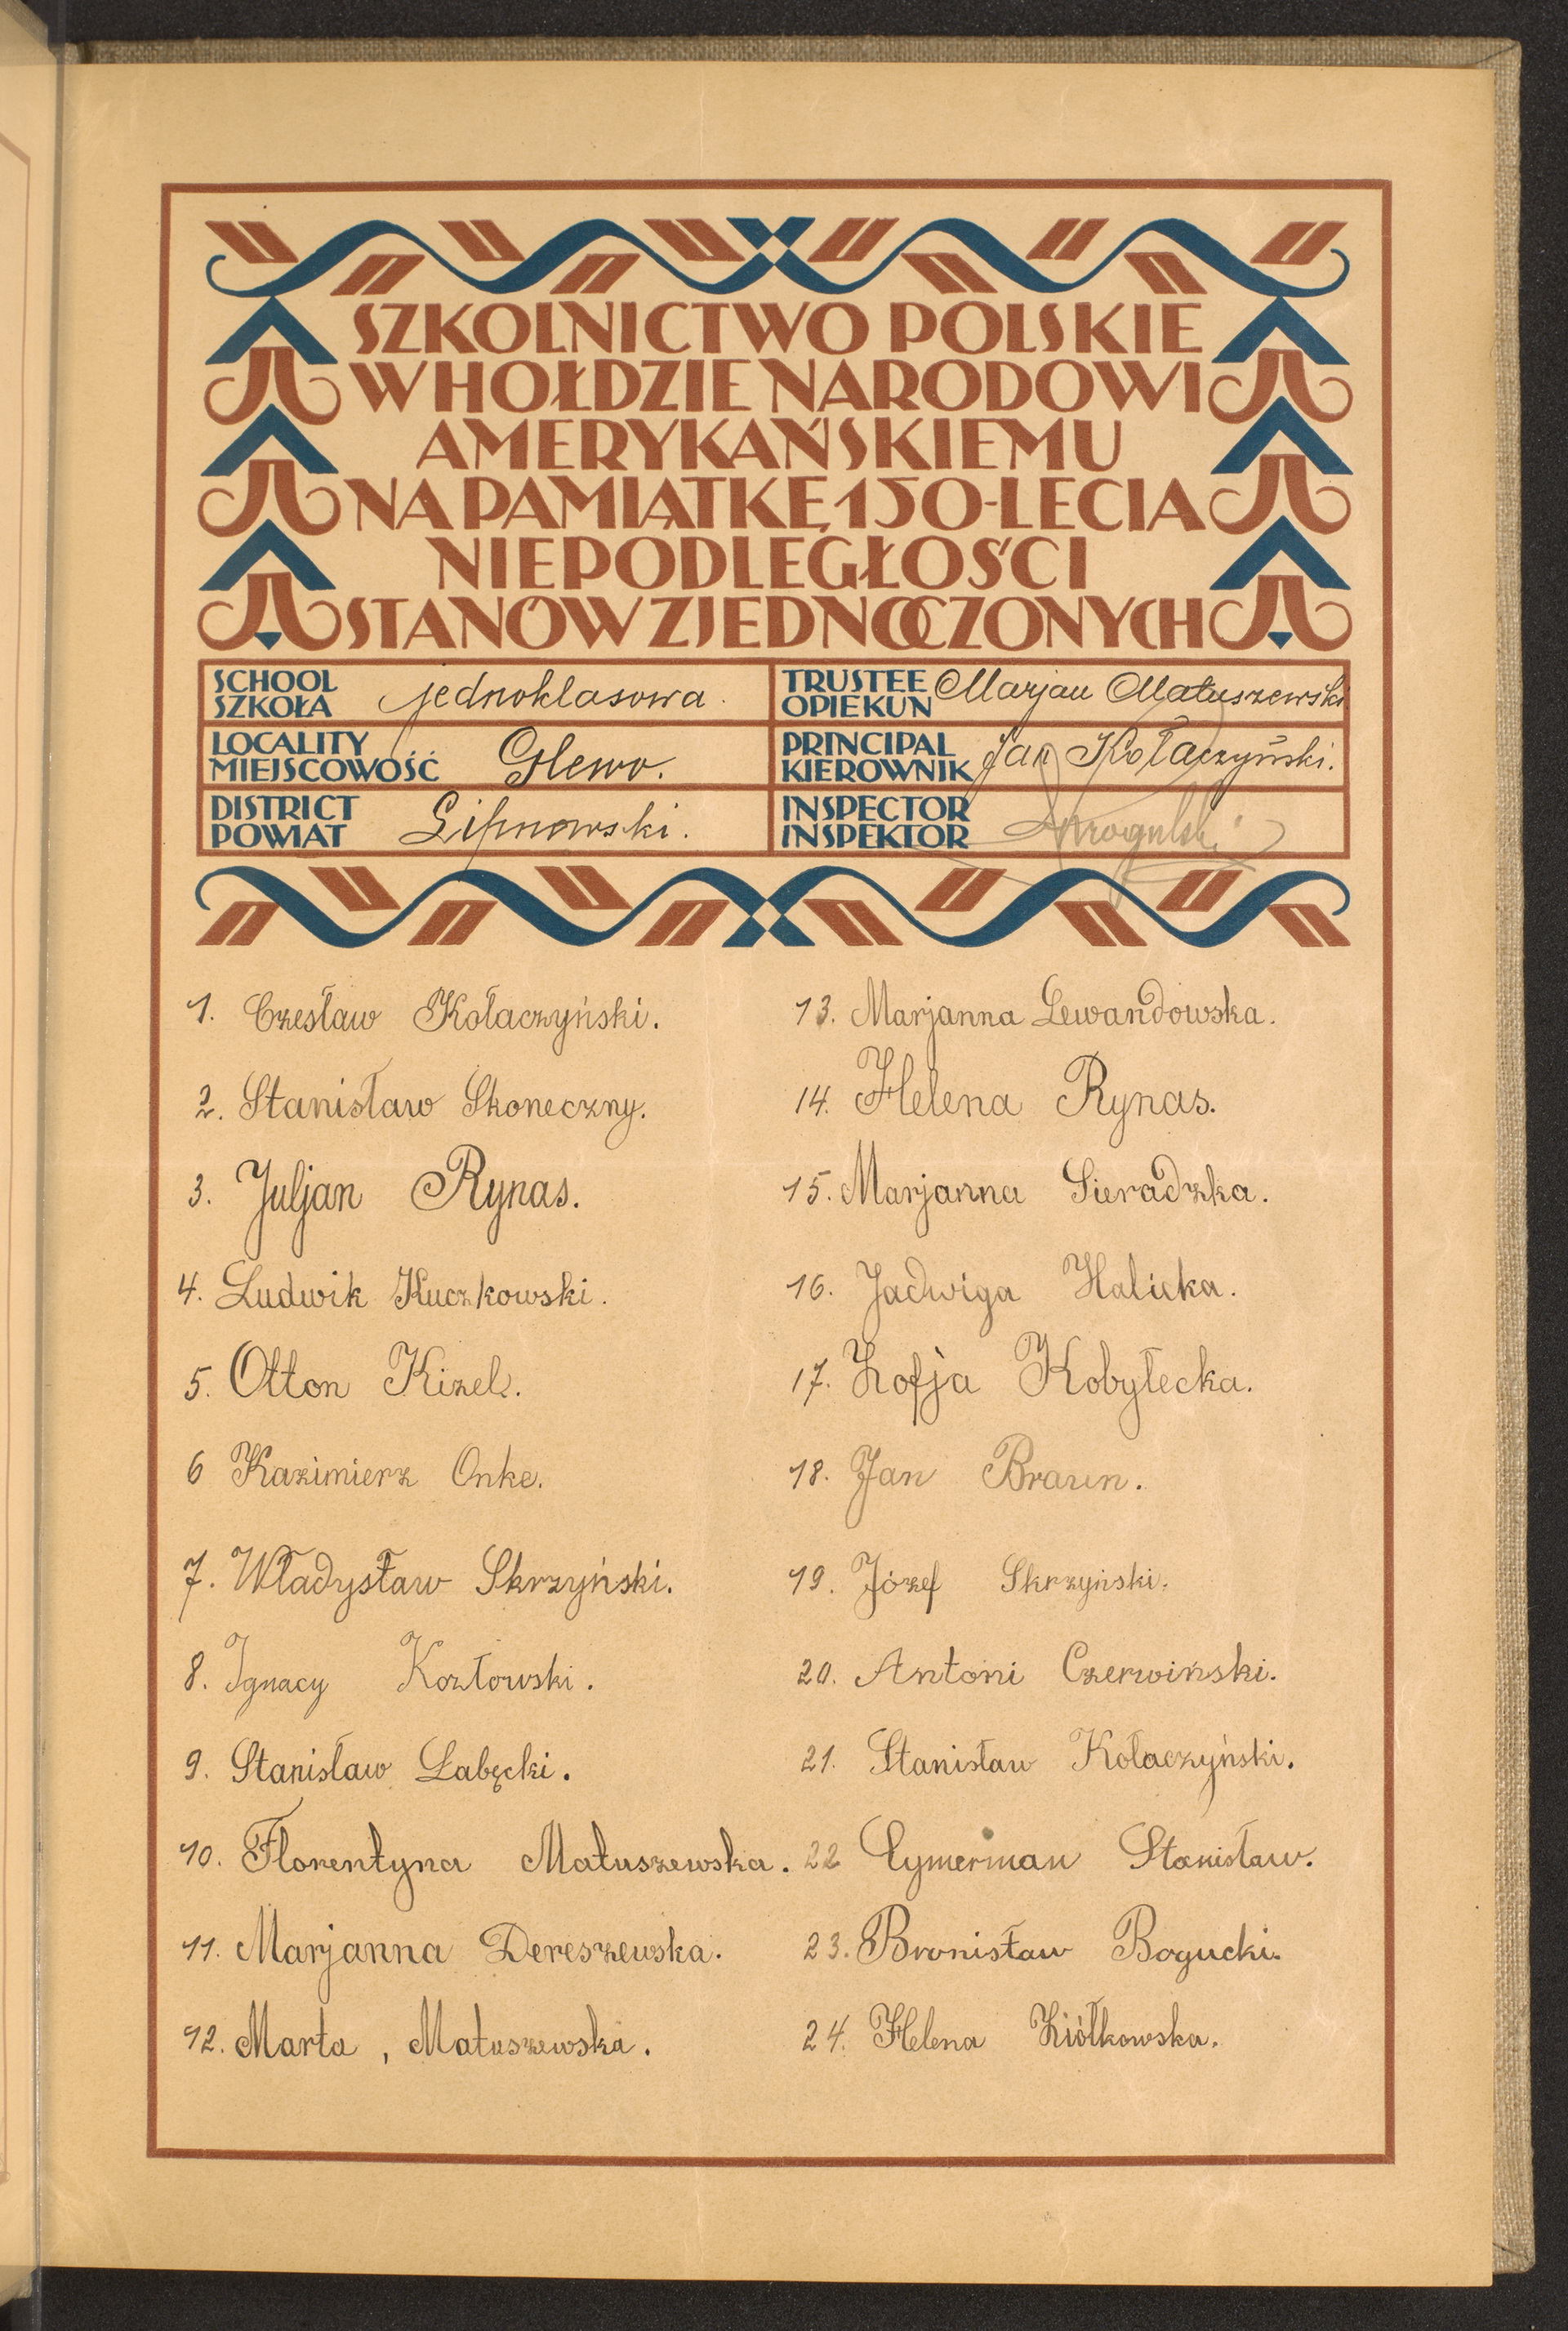 SZKOLNICTWO POLSKIE
W HOŁDZIE NARODOWI
AMERYKAŃSKIEMU
NA PAMIĄTKĘ 150-LECIA
NIEPODLEGŁOŚCI
STANÓW ZJEDNOCZONYCH
SCHOOL
SZKOŁA
jednoklasowa.
TRUSTEE
OPIEKUN
Marjan Matuszewski
LOCALITY
MIEJSCOWOŚĆ
Glewo.
PRINCIPAL
KIEROWNIK
Jan Kołaczyński.
DISTRICT
POWIAT
Lipnowski.
INSPECTOR
INSPEKTOR
1. Czesław Kołaczyński.
2. Stanisław Skoneczny.
3. Juljan Rynas.
4. Ludwik Kuczkowski.
5. Otton Kizel.
6 Kazimierz Onke.
7. Władysław Skrzyński.
8. Ignacy Kozłowski.
9. Stanisław Łabęcki.
10. Florentyna Matuszewska.
11. Marjanna Dereszewska.
12. Marta, Matuszewska.
13. Marjanna Lewandowska.
14. Helena Rynas.
15. Marjanna Sieradzka.
16. Jadwiga Halicka.
17. Zofja Kobyłecka.
18. Jan Braun.
19. Józef Skrzyński.
20. Antoni Czerwiński.
21. Stanisław Kołaczyński.
22 Cymerman Stanisław.
23. Bronisław Bogucki.
24. Helena Ziółkowska.